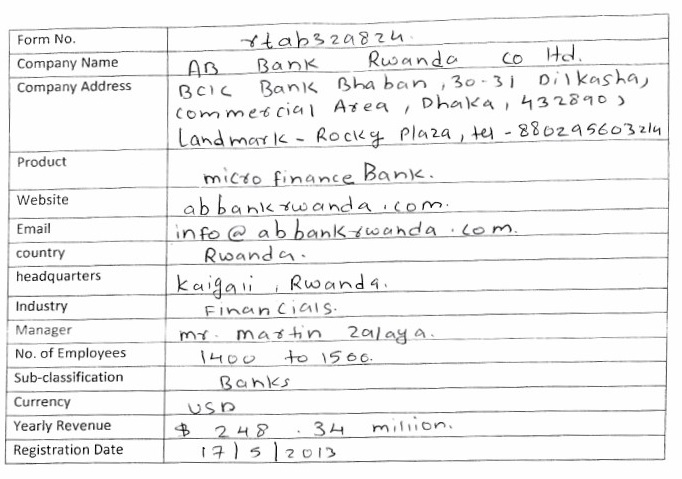 Form No. rtab329824.
Company Name AB Bank Rwanda Co ltd.
Company Address BCIC Bank Bhaban, 30-31 Dilkasha,
commercial Area, Dhaka, 432890,
Landmark - Rocky Plaza, tel - 880295603214
Product micro finance Bank.
Website abbankrwanda.com.
Email info@abbankrwanda.com.
country Rwanda.
headquarters Kaigali, Rwanda.
Industry Financials.
Manager mr. martin zalaya.
No. of Employees 1400 to 1500.
Sub-classification Banks
Currency USD
Yearly Revenue $ 248.34 million.
Registration Date 17/5/2013